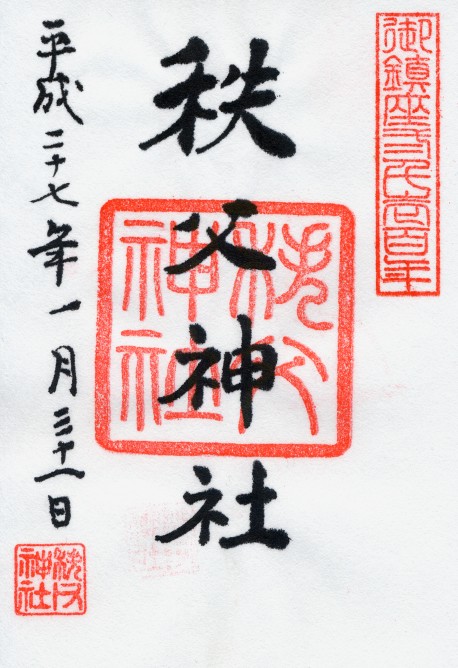 御鎮座百年
秩父神社
秩父
神社
平成二十七年一月三十一日
秩父
神社